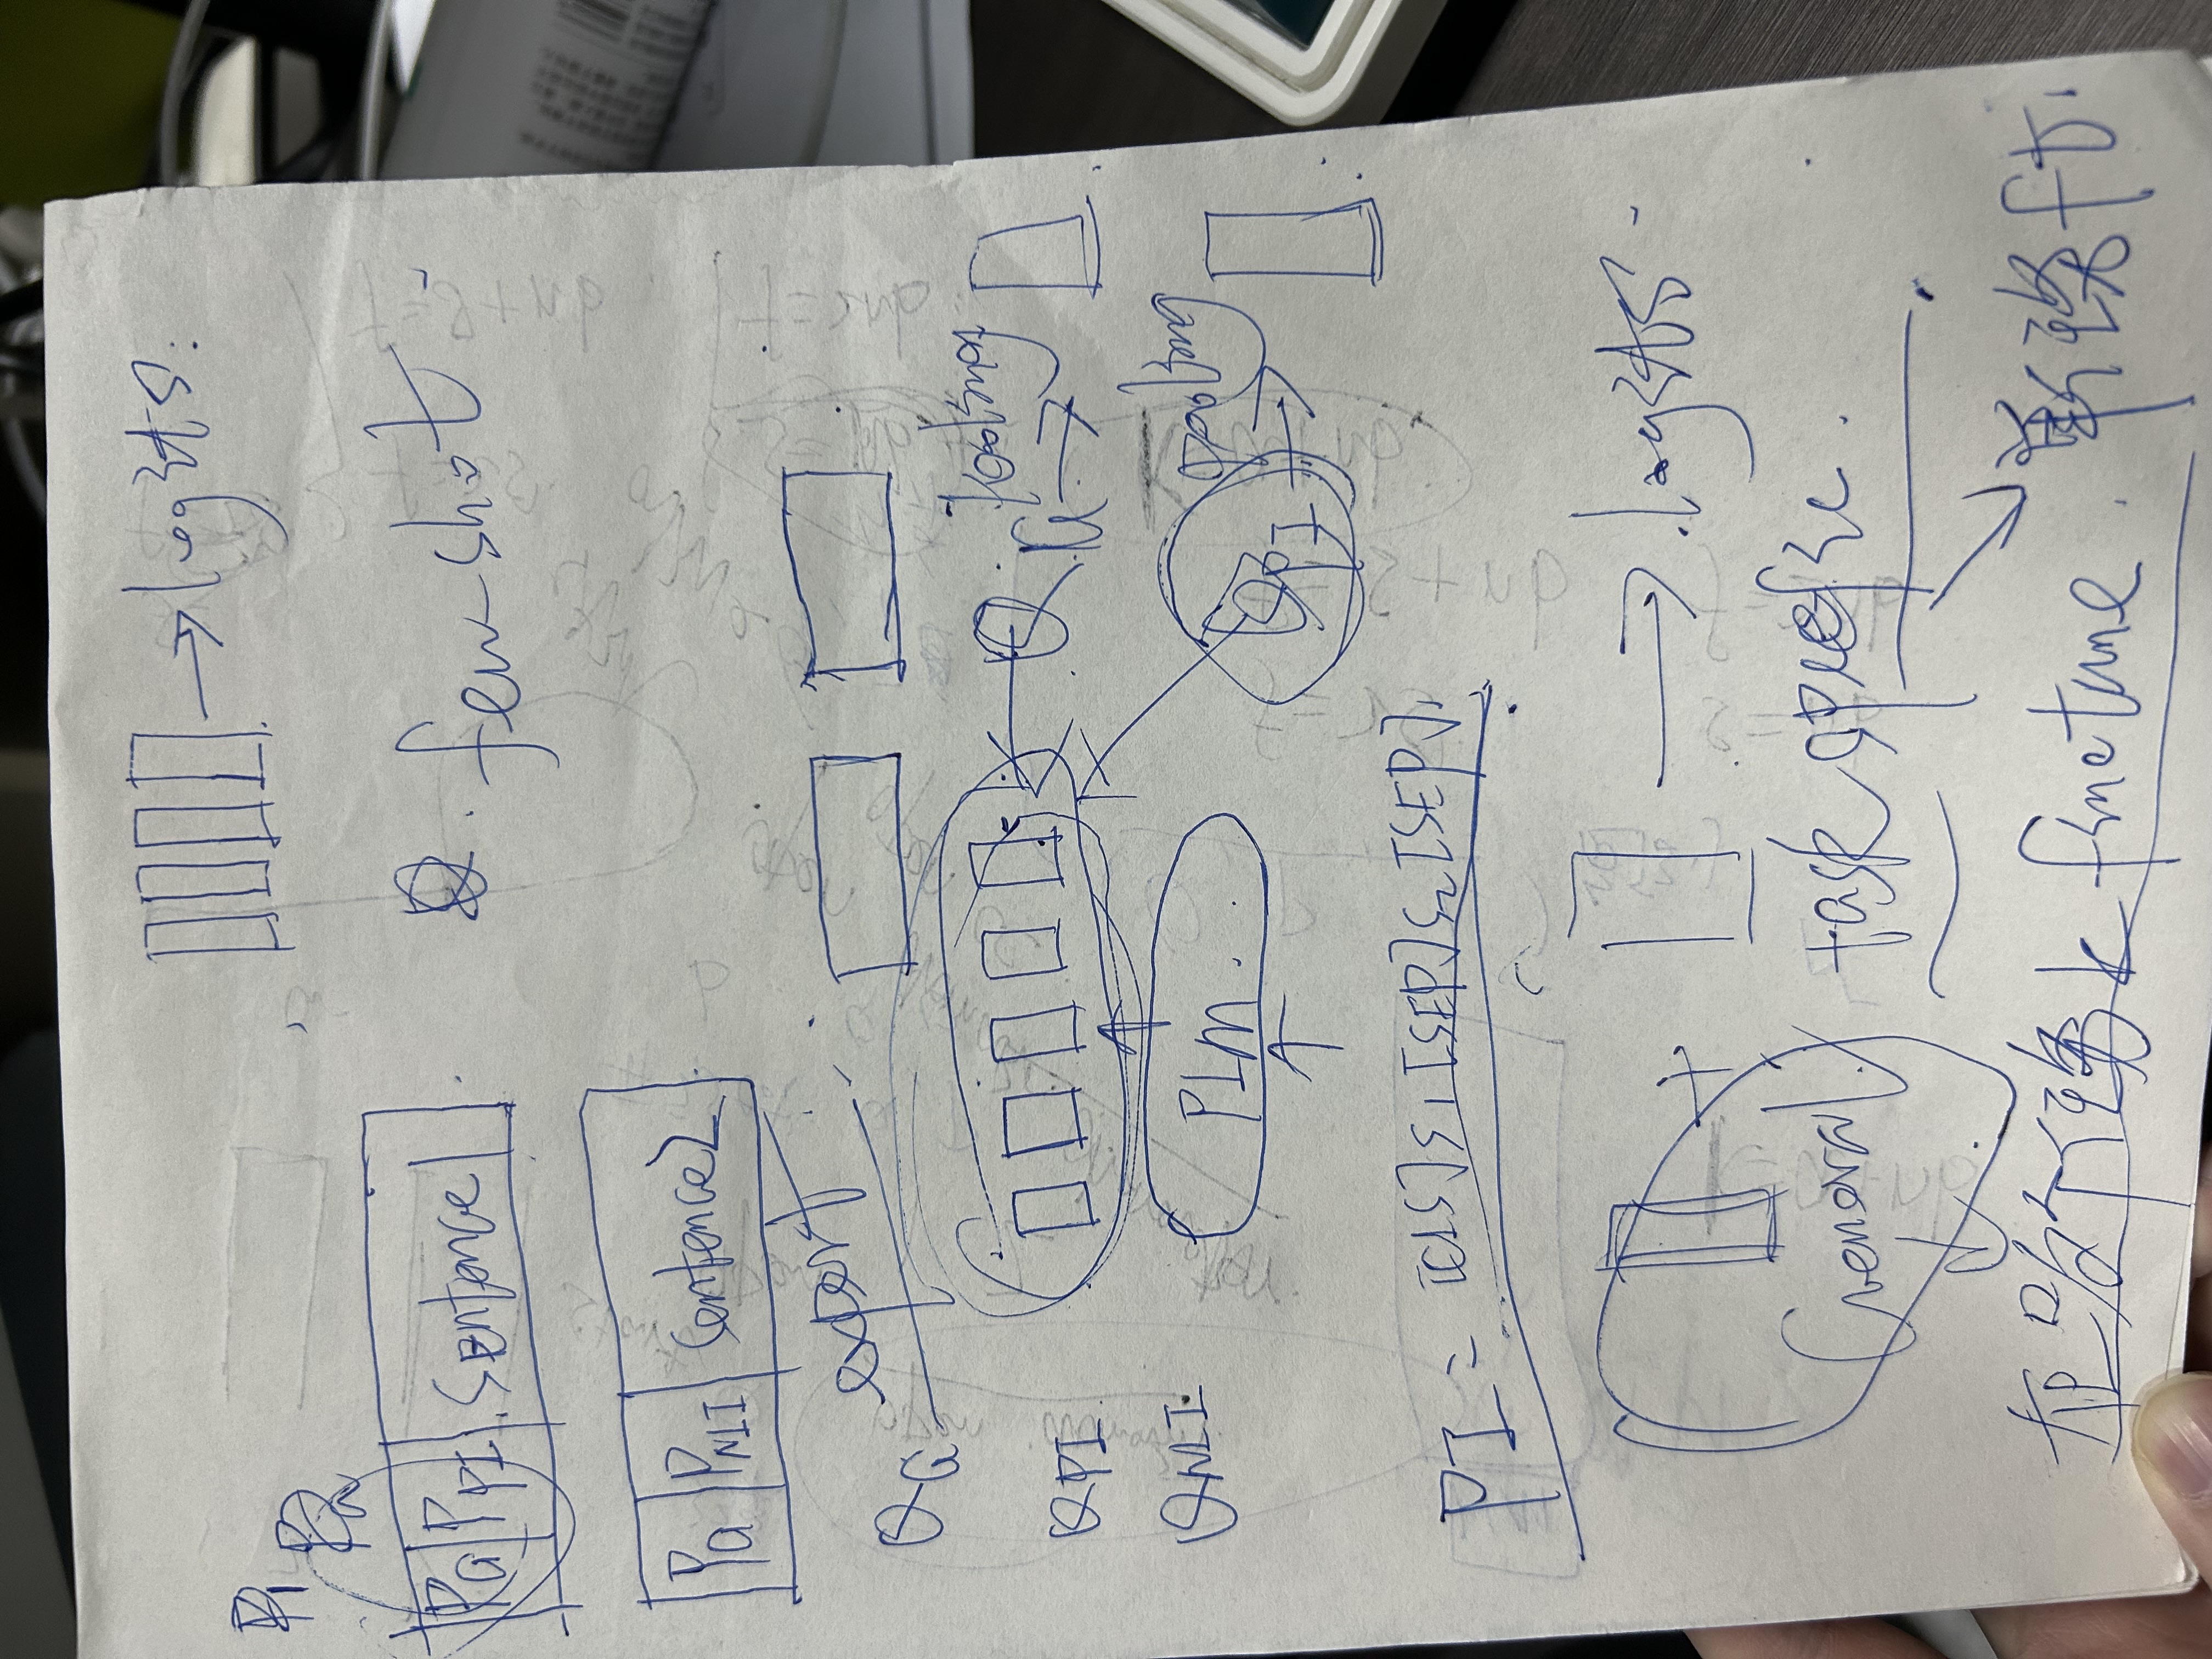 → logits.
P1
PG
PG PPI Sentence1
few-shot
PG PNLI Sentence2
expert
QG
QG pooling →
QPI
QNLI
PLM
QPI pooling →
PI = [CLS] S1 [SEP] S2 [SEP].
+ → logits
General task specific.
finetune. 单任务ft.